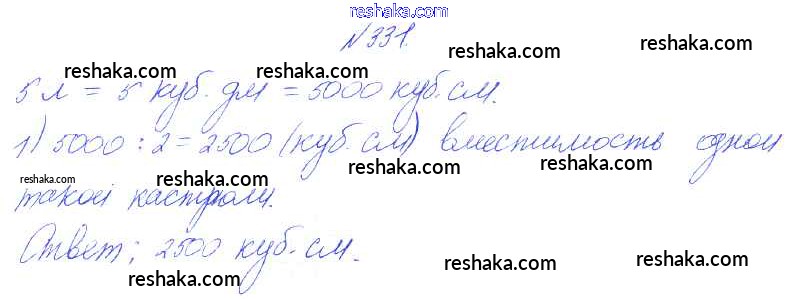 reshaka.com
№331.
reshaka.com reshaka.com reshaka.com
5 л = 5 куб. дм = 5000 куб. см.
reshaka.com reshaka.com
1) 5000 : 2 = 2500 (куб. см) вместимость одной
reshaka.com reshaka.com reshaka.com
такой кастрюли.
reshaka.com
Ответ: 2500 куб. см.
reshaka.com reshaka.com reshaka.com